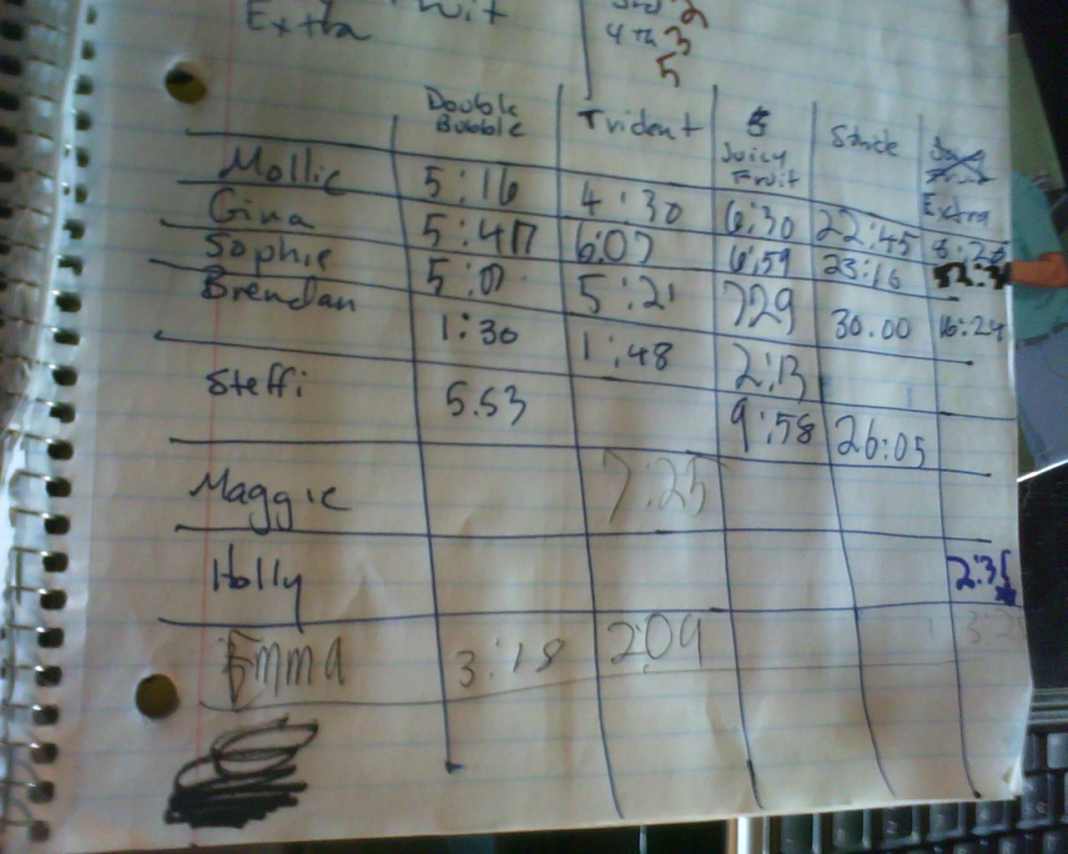 Extra
2
4th 3
5
Double Bubble Trident Juicy Fruit Stride Extra
Mollie 5:16 4:30 6:30 22:45
Gina 5:47 6:07 6:59 23:16
Sophie 5:01 5:21 729 30.00 16:24
Brendan 1:30 1:48 2:13
Steffi 5.53 9:58 26:05
Maggie 7:25
Holly 2:35
Emma 3:18 2:09